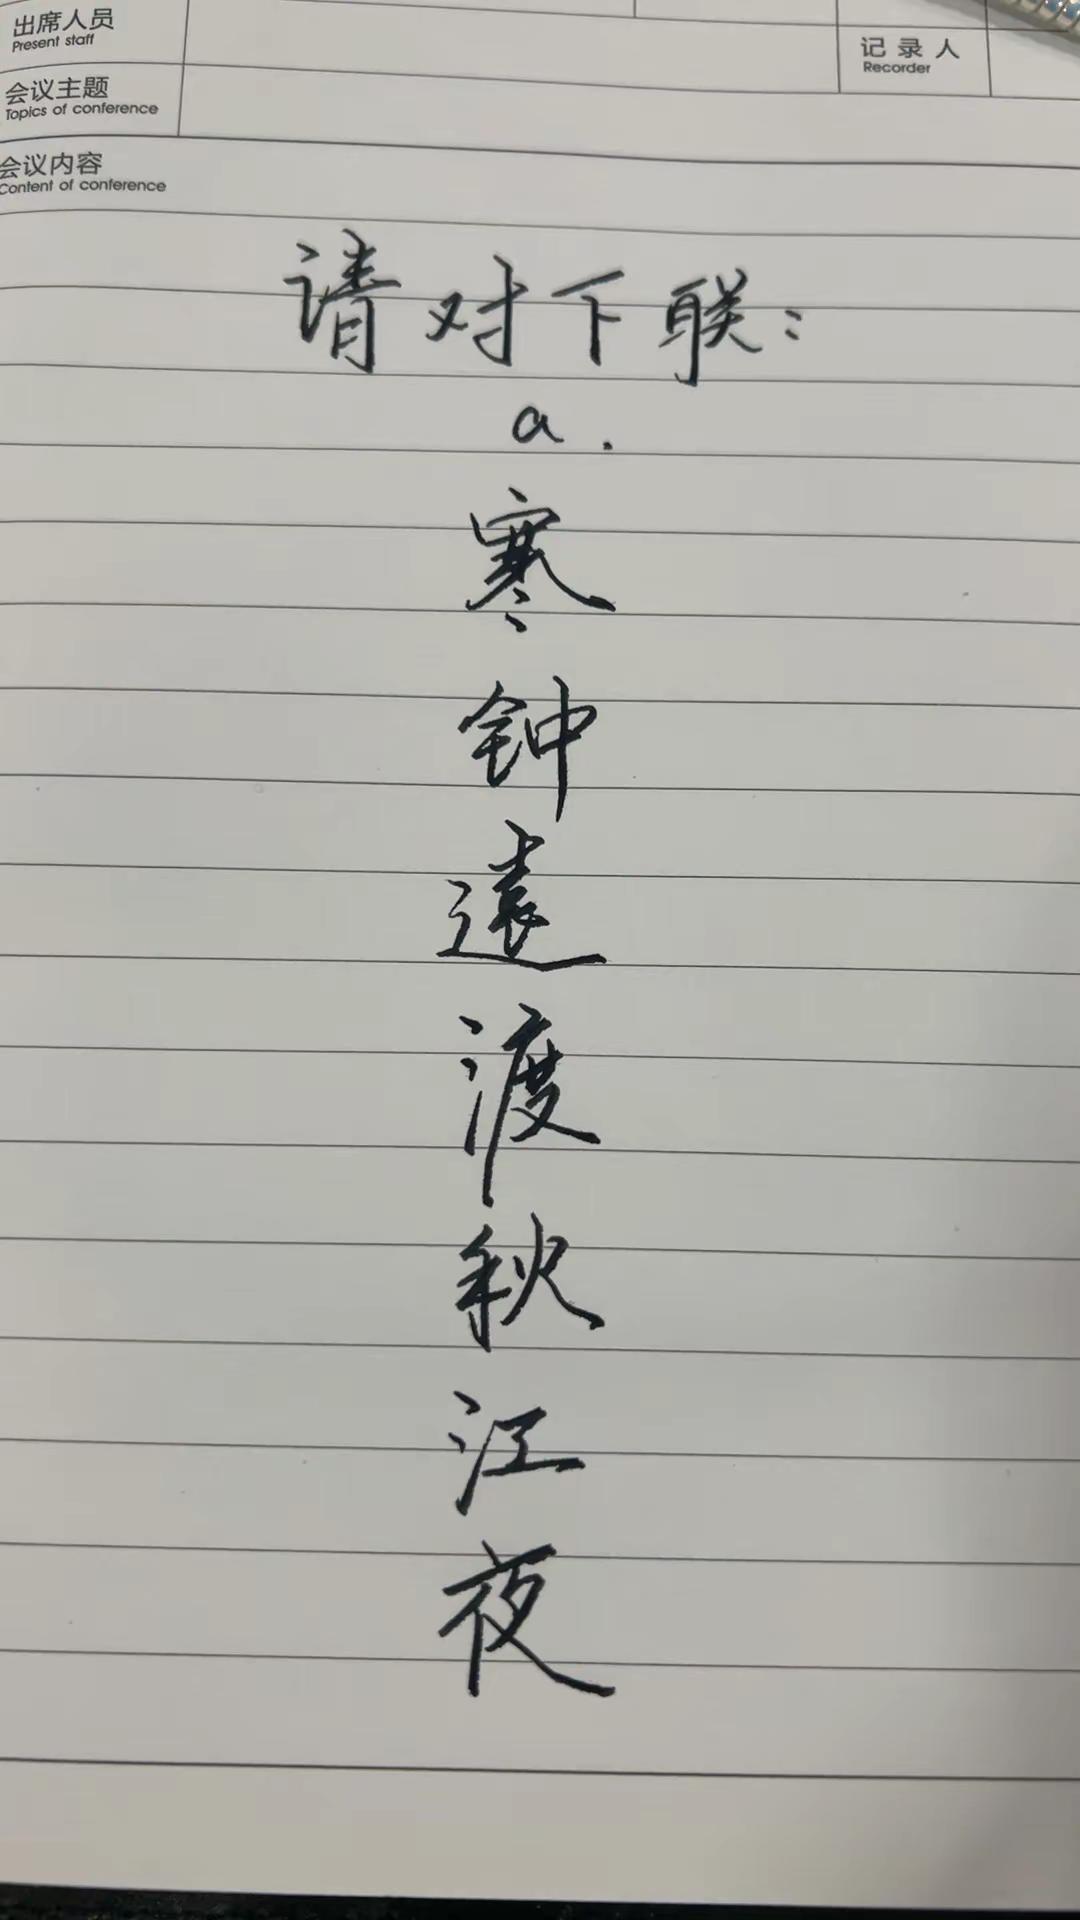 出席人员
Present staff
记录人
Recorder
会议主题
Topics of conference
会议内容
Content of conference
请对下联：
a.
寒
钟
遠
渡
秋
江
夜